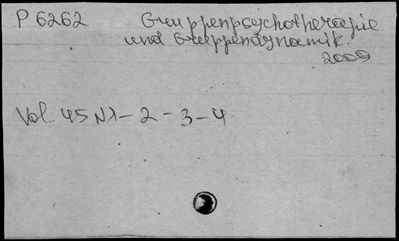 P 6262 Gruppenpsychotherapie
und Gruppendynamik.
2009
Vol. 45 N1-2-3-4